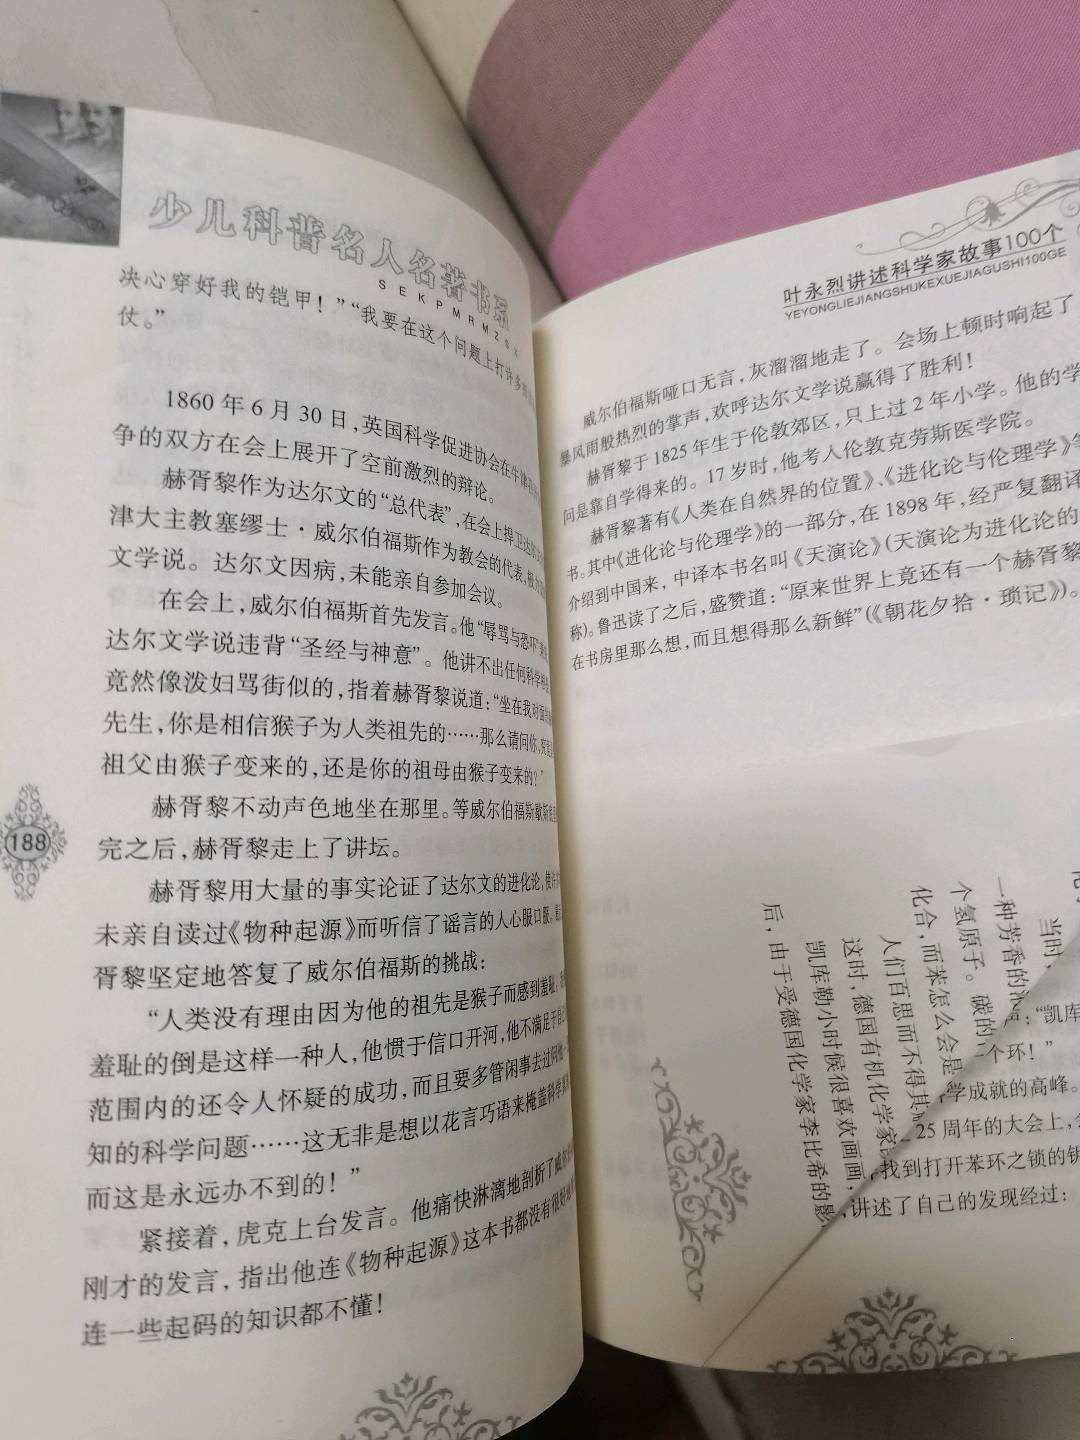 少儿科普名人名著书系
SEKPMRMZSX
决心穿好我的铠甲！”“我要在这个问题上打许多
仗。”
1860年6月30日，英国科学促进协会在牛津
争的双方在会上展开了空前激烈的辩论。
赫胥黎作为达尔文的“总代表”，在会上捍卫达尔文
津大主教塞缪士·威尔伯福斯作为教会的代表，极力
文学说。达尔文因病，未能亲自参加会议。
在会上，威尔伯福斯首先发言。他“辱骂与恐吓”
达尔文学说违背“圣经与神意”。他讲不出任何科学
竟然像泼妇骂街似的，指着赫胥黎说道：“坐在我对面
先生，你是相信猴子为人类祖先的……那么请问你，究竟
祖父由猴子变来的，还是你的祖母由猴子变来的？”
赫胥黎不动声色地坐在那里。等威尔伯福斯歇斯底里
完之后，赫胥黎走上了讲坛。
赫胥黎用大量的事实论证了达尔文的进化论，使许
未亲自读过《物种起源》而听信了谣言的人心服口服。
胥黎坚定地答复了威尔伯福斯的挑战：
“人类没有理由因为他的祖先是猴子而感到羞耻。
羞耻的倒是这样一种人，他惯于信口开河，他不满足于自己
范围内的还令人怀疑的成功，而且要多管闲事去过问他
知的科学问题……这无非是想以花言巧语来掩盖科学
而这是永远办不到的！”
紧接着，虎克上台发言。他痛快淋漓地剖析了威尔
刚才的发言，指出他连《物种起源》这本书都没有很好地
连一些起码的知识都不懂！
188
叶永烈讲述科学家故事100个
YEYONGLIEJIANGSHUKEXUEJIAGUSHI100GE
威尔伯福斯哑口无言，灰溜溜地走了。会场上顿时响起了
暴风雨般热烈的掌声，欢呼达尔文学说赢得了胜利！
赫胥黎于1825年生于伦敦郊区，只上过2年小学。他的学
问是靠自学得来的。17岁时，他考人伦敦克劳斯医学院。
赫胥黎著有《人类在自然界的位置》、《进化论与伦理学》等
书。其中《进化论与伦理学》的一部分，在1898年，经严复翻译
介绍到中国来，中译本书名叫《天演论》（天演论为进化论的
称）。鲁迅读了之后，盛赞道：“原来世界上竟还有一个赫胥黎
在书房里那么想，而且想得那么新鲜”（《朝花夕拾·琐记》）。
当时，
一种芳香的
个氢原子。碳的
化合，而苯怎么会是
人们百思而不得其
这时，德国有机化学家
凯库勒小时候很喜欢画画，
后，由于受德国化学家李比希的影
：“凯库
个环！”
学成就的高峰。
25周年的大会上，
找到打开苯环之锁的钥
讲述了自己的发现经过：